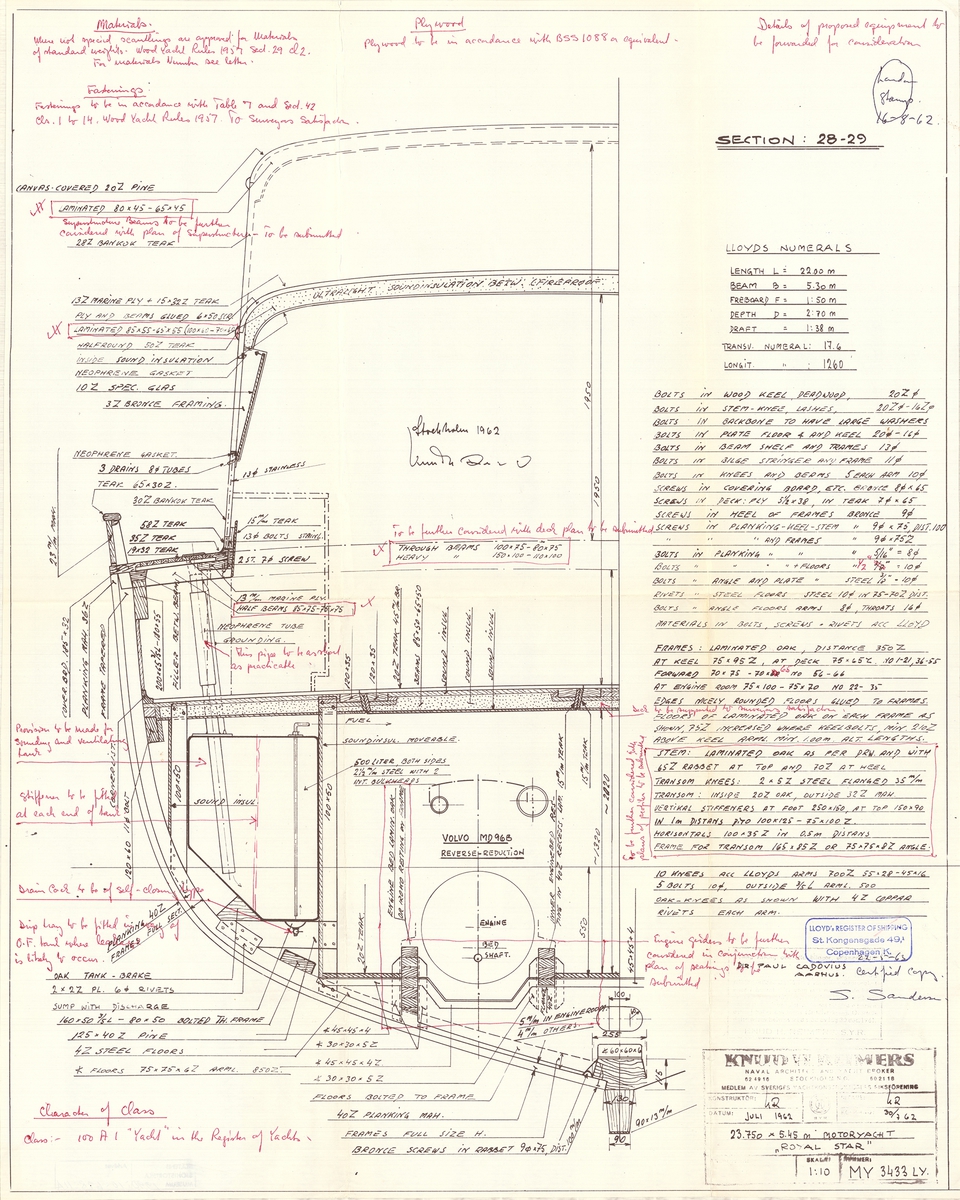 Materials.
When not special scantlings are approved for Materials
of standard weights. Wood Yacht Rules 1957 Sed. 29 Cl. 2.
For materials Number see letter.
Fastenings:
Fastenings to be in accordance with Table 7 and Sed. 42
Cls. 1 to 14. Wood Yacht Rules 1957. To Surveyors Satisfaction.
Plywood
Plywood to be in accordance with BSS 1088 or equivalent.
Details of proposed equipment to
be forwarded for consideration
London
Stamp
16-8-62.
SECTION: 28-29
CANVAS-COVERED 20Z PINE
LAMINATED 80×45-65×45
Superstructure Beams to be further
considered with plan of Superstructure - To be submitted
28Z BANKOK TEAK
13Z MARINE PLY + 15×32Z TEAK
PLY AND BEAMS GLUED 6×50 SCR
LAMINATED 85×55-65×55 (100×60-70×65)
HALFROUND 50Z TEAK
INSIDE SOUND INSULATION
NEOPHRENE GASKET
10Z SPEC. GLAS
3Z BRONCE FRAMING.
ULTRALIGHT SOUNDINSULATION BETW. (FIREPROOF)
NEOPHRENE GASKET.
3 DRAINS 8¢ TUBES
TEAK 65×30Z.
30Z BANKOK TEAK
58Z TEAK
35Z TEAK
19×32 TEAK
13¢ STAINLESS
15 m/m TEAK
13¢ BOLTS STRING
2 ST. 7¢ SCREW
13 m/m MARINE PLY.
HALF BEAMS 85×75-75×75
NEOPHRENE TUBE
GROUNDING.
This pipe to be as short
as practicable
Stockholm 1962
1950
1950
To be further considered with deck plan to be submitted
THROUGH BEAMS 100×75-80×75
HEAVY " 150×100-110×100
LLOYDS NUMERALS
LENGTH L = 22.00 m
BEAM B = 5.30 m
FREBOARD F = 1.50 m
DEPTH D = 2.70 m
DRAFT = 1.38 m
TRANSV. NUMERAL: 17.6
LONGIT. " : 1260
BOLTS IN WOOD KEEL, DEADWOOD, 20Z¢
BOLTS IN STEM-KNEE, LASHES, 20Z¢-16Z¢
BOLTS IN BACKBONE TO HAVE LARGE WASHERS
BOLTS IN PLATE FLOOR & AND KEEL 20¢-16¢
BOLTS IN BEAM SHELF AND FRAMES 13¢
BOLTS IN BILGE STRINGER AND FRAME 11¢
BOLTS IN KNEES AND BEAMS 5 EACH ARM 10¢
SCREWS IN COVERING BOARD, ETC. BRONCE 8¢×65
SCREWS IN DECK: PLY 5½×38, IN TEAK 7¢×65
SCREWS IN HEEL OF FRAMES BRONCE 9¢
SCREWS IN PLANKING-KEEL-STEM " 9¢×75, DIST. 100
" " " AND FRAMES " 9¢×75Z
BOLTS IN PLANKING " " " 5/16" = 8¢
BOLTS " " " + FLOORS " 1/2 = 10¢
BOLTS " ANGLE AND PLATE " STEEL = 10¢
RIVETS " STEEL FLOORS STEEL 10¢ IN 75-70Z DIST.
BOLTS " ANGLE FLOORS ARMS 8¢, THROATS 16¢
MATERIALS IN BOLTS, SCREWS + RIVETS ACC LLOYD
FRAMES: LAMINATED OAK, DISTANCE 350Z
AT KEEL 75×95Z, AT DECK 75×65Z. NO 1-21, 36-55
FORWARD 70×75 -70×65 NO 56-66
AT ENGINE ROOM 75×100-75×70 NO 22-35
EDGES NICELY ROUNDED FLOORS GLUED TO FRAMES.
FLOORS OF LAMINATED OAK ON EACH FRAME AS
SHOWN, 75Z INCREASED WHERE KEELBOLTS, MIN 210Z
ABOVE KEEL ARML MIN. 1.00 m. ALT. LENGTHS.
STEM: LAMINATED OAK AS PER DRW. AND WITH
65Z RABBET AT TOP AND 70Z AT HEEL
TRANSOM KNEES: 2×5Z STEEL FLANGED 35 m/m
TRANSOM: INSIDE 20Z OAK, OUTSIDE 32Z MAH.
VERTICAL STIFFENERS AT FOOT 250×150, AT TOP 150×90
IN 1 m DISTANS DITO 100×125-75×100Z.
HORISONTALS 100×35Z IN 0.5 m DISTANS
FRAME FOR TRANSOM 165×85Z OR 75×75×8Z ANGLE.
10 KNEES ACC LLOYDS ARMS 700Z 55×28-45×16
5 BOLTS 10¢, OUTSIDE ARML. 500
OAK-KNEES AS SHOWN WITH 4Z COPPAR
RIVETS EACH ARM.
COVER. BRD.
PLANKING MAH.
FRAME TAPERED
FILLER BETW. BEAM
120×35
120×35
BEAMS
SOUND INSUL.
SOUND INSUL.
Provision to be made for
grounding and ventilating
tank
Stiffeners to be fitted
at each end of tank
Drain Cock to be of self-closing type
Drip tray to be fitted in way of
O.F. tank where leakage
is likely to occur.
100×50
SOUND INSUL.
100×60
FUEL
SOUNDINSUL. MOVEABLE.
600 LITER, BOTH SIDES
2½ m/m STEEL WITH 2
INT. BULKHEADS
VOLVO MD 96B
REVERSE-REDUCTION
ENGINE
BED
SHAFT.
20Z TEAK.
~2020
~1320
15 m/m TEAK
45×45×4
PLANKING 40Z
FRAMES FULL SECT.
OAK TANK-BRAKE
2×2Z PL. 6¢ RIVETS
SUMP WITH DISCHARGE
160×50 -80×50 BOLTED TH. FRAME
125×40Z PINE
4Z STEEL FLOORS
* FLOORS 75×75×6Z ARML. 850Z.
∠ 45×45×4
∠ 30×30×5Z
∠ 45×45×4Z
∠ 30×30×5Z
FLOORS BOLTED TO FRAME
40Z PLANKING MAH.
FRAMES FULL SIZE H.
BRONCE SCREWS IN RABBET 9¢×75 DIST. 100 m/m
5 m/m IN ENGINEROOM.
4 m/m OTHERS.
100
255
∠60×60×6
130
90
Engine girders to be further
considered in conjunction with
plan of seatings to be
submitted
DIR. PAUL CADOVIUS
AARHUS.
LLOYD'S REGISTER OF SHIPPING
St. Kongensgade 49,
Copenhagen K.
Certified Copy.
S. Sandersen
Character of Class
Class:- 100 A1 "Yacht" in the Register of Yachts.
KNUD H REIMERS
NAVAL ARCHITECT AND BROKER
STOCKHOLM
KONSTRUKTÖR:
KR
DATUM:
JULI 1962
KR
23.750 × 5.45 m MOTORYACHT
"ROYAL STAR"
SKALA:
1:10
NUMMER:
MY 3433 LY.